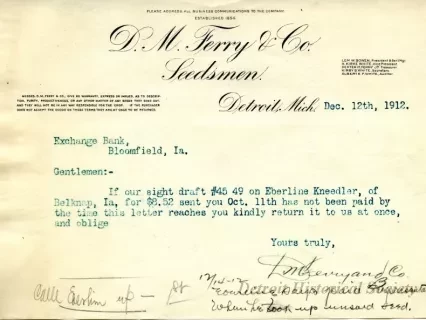 PLEASE ADDRESS ALL BUSINESS COMMUNICATIONS TO THE COMPANY
ESTABLISHED 1856
D. M. Ferry & Co.
Seedsmen.
Detroit, Mich. Dec. 12th, 1912.
Exchange Bank,
Bloomfield, Ia.
Gentlemen:-
If our sight draft #45 49 on Eberline Kneedler, of
Belknap, Ia, for $8.52 sent you Oct. 11th has not been paid by
the time this letter reaches you kindly return it to us at once,
and oblige
Yours truly,
D M Ferry and Co.
Detroit Historical Society
12/14-12
Call up —
When he took up unsold seed.